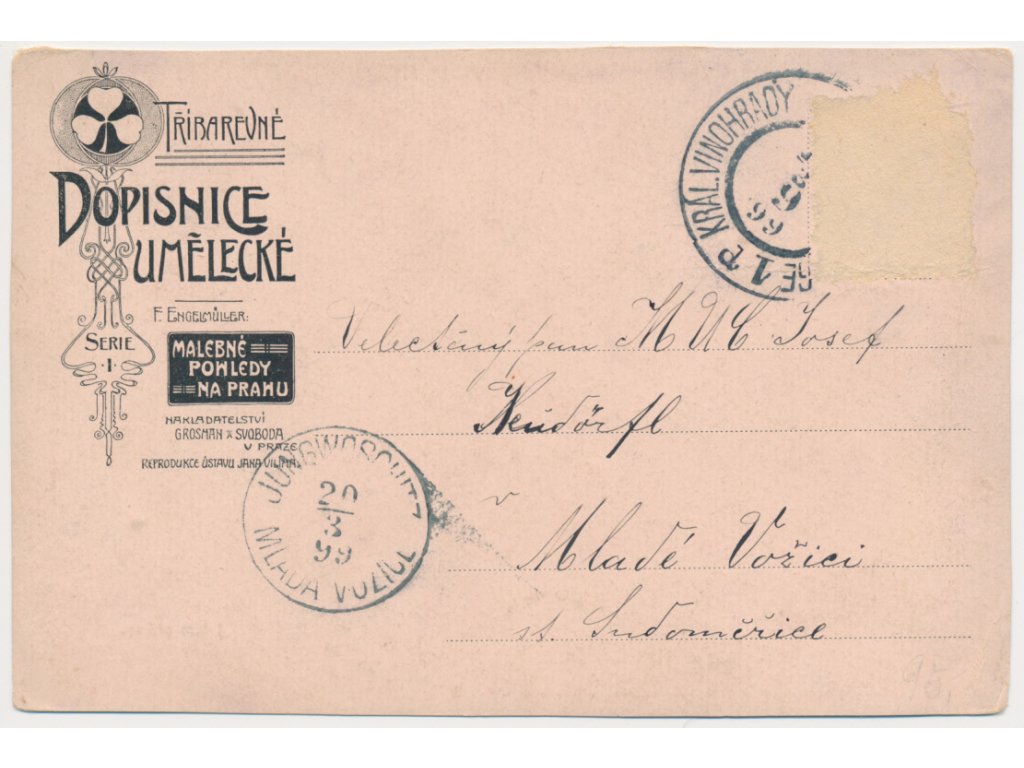 TŘÍBAREVNÉ
DOPISNICE
UMĚLECKÉ
F. ENGELMÜLLER:
SERIE
·I·
MALEBNÉ
POHLEDY
NA PRAHU
NAKLADATELSTVÍ
GROSMAN & SVOBODA
V PRAZE
REPRODUKCE ÚSTAVU JANA VILÍMA
KRÁL. VINOHRADY
99
GE 1
Velectěný pan MUC Josef
Neudörfl
v
Mladé Vožici
st. Sudoměřice
JUNGWOSCHITZ
20
3
99
MLADA VOŽICE
95.